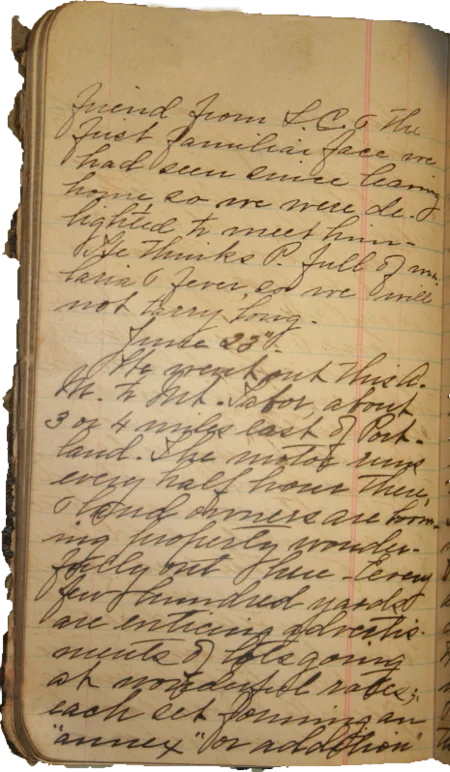 friend from S.C. & the
first familiar face we
had seen since leaving
home, so we were de-
lighted to meet him.
He thinks P. full of ma-
laria & fever, so we will
not tarry long.
June 23rd.
We went out this A.
M. to Mt. Tabor, about
3 or 4 miles east of Port-
land. The motor runs
every half hour there,
& land owners are boom-
ing property wonder-
fully out there - Every
few hundred yards
are enticing advertis-
ments of lots going
at wonderful rates;
each set forming an
"annex" or addition"